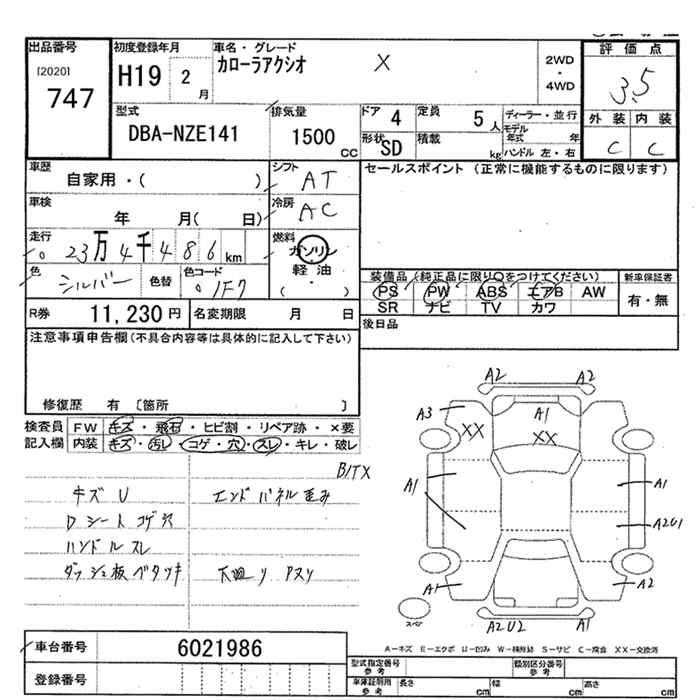 出品番号
[2020]
747
初度登録年月
H19 2 月
車名・グレード
カローラアクシオ X
2WD
・
4WD
評価点
3.5
外装 内装
C C
型式
DBA-NZE141
排気量
1500 CC
ドア 4
形状 SD
定員 5 人
積載 kg
ディーラー・並行
モデル年式 年
ハンドル 左・右
車歴
自家用・( )
シフト AT
車検
年 月( 日)
冷房 AC
走行
23万4千486km
燃料
ガソリン
軽油
( ・ )
色 シルバー
色替
色コード 1F7
R券 11,230円
名変期限 月 日
セールスポイント (正常に機能するものに限ります)
装備品(純正品に限り○をつけてください)
PS PW ABS エアB AW
SR ナビ TV カワ
新車保証書
有・無
後日品
注意事項申告欄(不具合内容等は具体的に記入して下さい)
修復歴 有 〔箇所 〕
検査員
記入欄
FW キズ・飛石・ヒビ割・リペア跡・×要
内装 キズ・汚レ・コゲ・穴・スレ・キレ・破レ
B/TX
キズ U
エンドパネル歪み
Dシート コゲ穴
ハンドルスレ
ダッシュ板ベタツキ
下廻り サスリ
A2 A2
A3 XX A1 XX
A1 A1
A2U1
A1 A2
スペア
A2U2 A1
車台番号 6021986
登録番号
A-キズ E-エクボ U-凹み W-補修跡 S-サビ C-腐食 XX-交換済
型式指定番号 参考
類別区分番号 参考
車庫証明用 参考
長さ cm 幅 cm 高さ cm